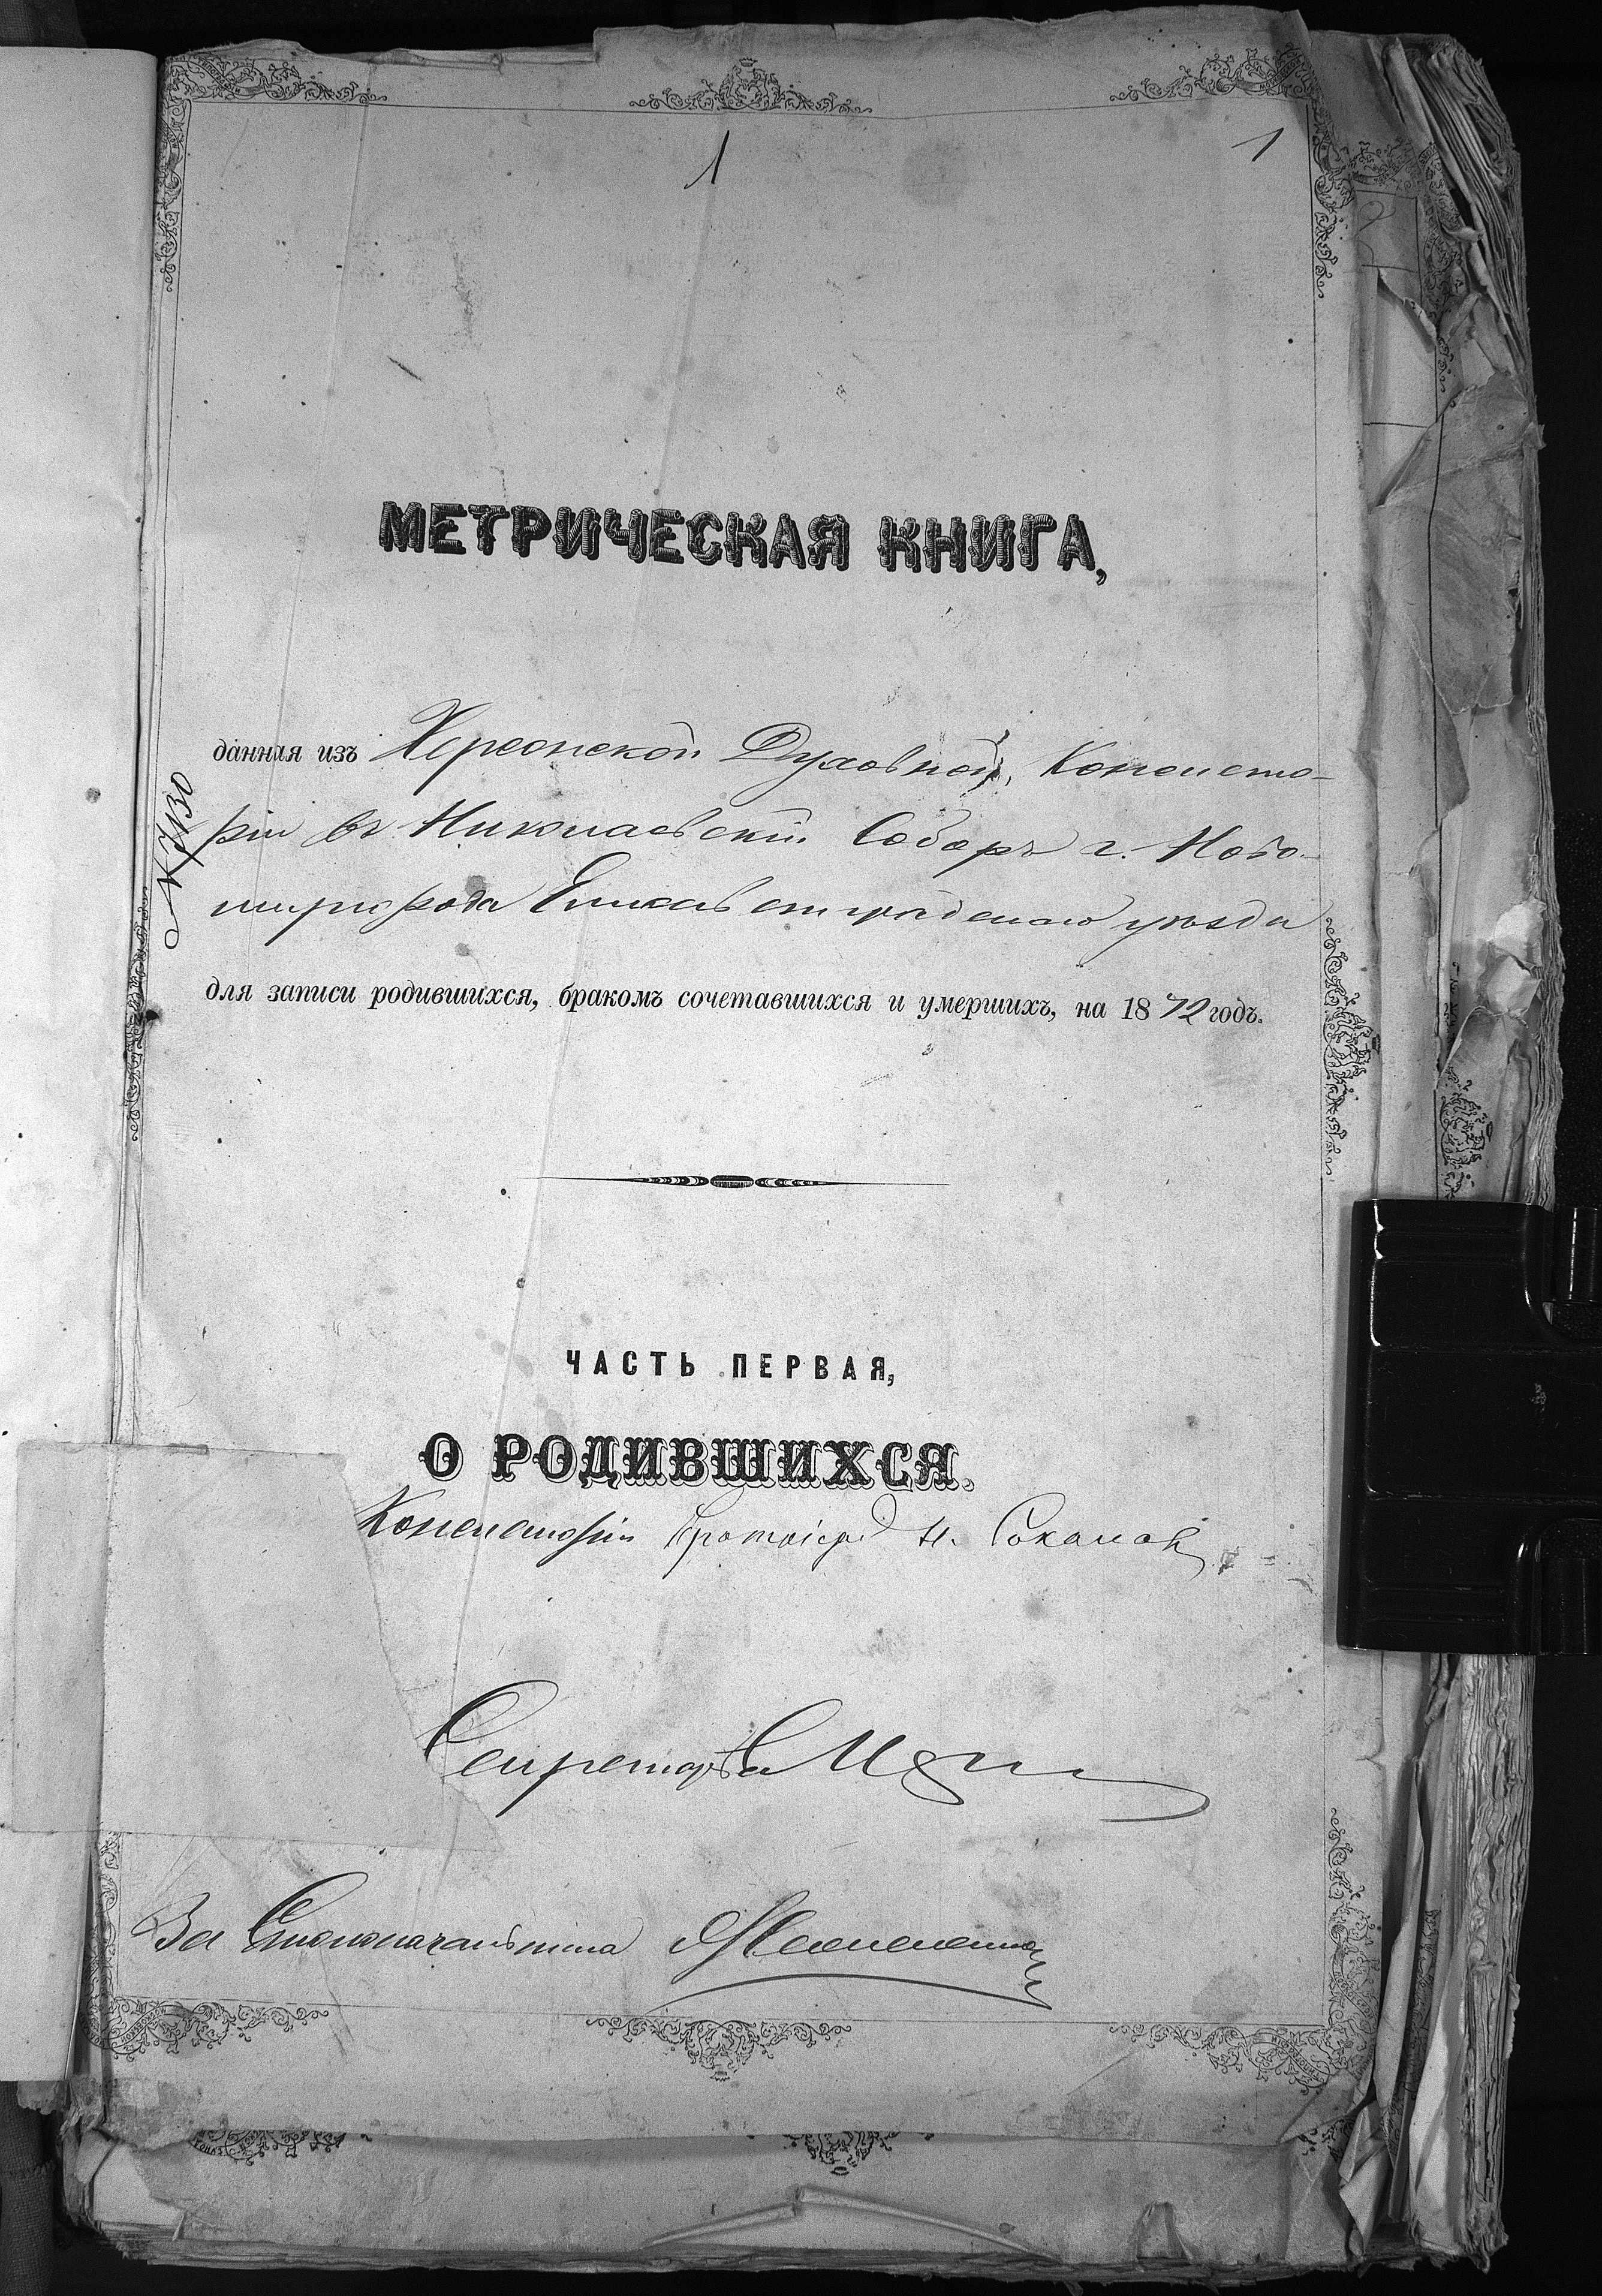 1 1
МЕТРИЧЕСКАЯ КНИГА,
данная изъ Херсонской Духовной Консисто-
ріи въ Николаевскій Соборъ г. Ново-
миргорода Елисаветградскаго уѣзда
для записи родившихся, бракомъ сочетавшихся и умершихъ, на 1872 годъ.
ЧАСТЬ ПЕРВАЯ,
О РОДИВШИХСЯ.
Консисторіи Протоіерей Н. Соколов
Секретарь
За Столоначальника